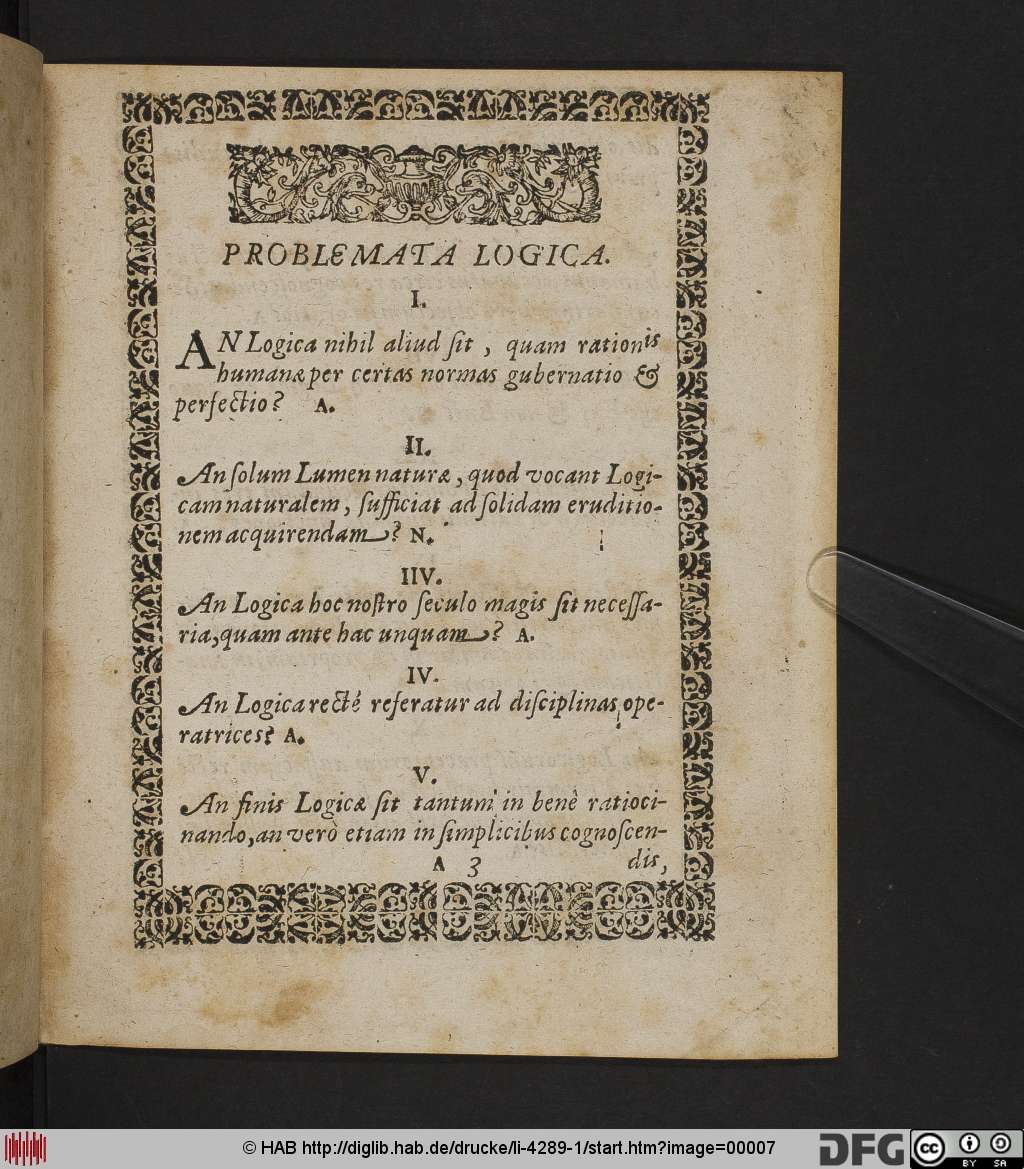 PROBLEMATA LOGICA.
I.
AN Logica nihil aliud ſit, quam rationis
humanæ per certas normas gubernatio &
perfectio? A.
II.
An ſolum Lumen naturæ, quod vocant Logi-
cam naturalem, ſufficiat ad ſolidam eruditio-
nem acquirendam? N.
IIV.
An Logica hoc noſtro ſeculo magis ſit neceſſa-
ria, quam ante hac unquam? A.
IV.
An Logica recté referatur ad diſciplinas ope-
ratrices? A.
V.
An finis Logicæ ſit tantum in benè ratioci-
nando, an verò etiam in ſimplicibus cognoſcen-
A 3 dis,
© HAB http://diglib.hab.de/drucke/li-4289-1/start.htm?image=00007
DFG
cc
BY SA